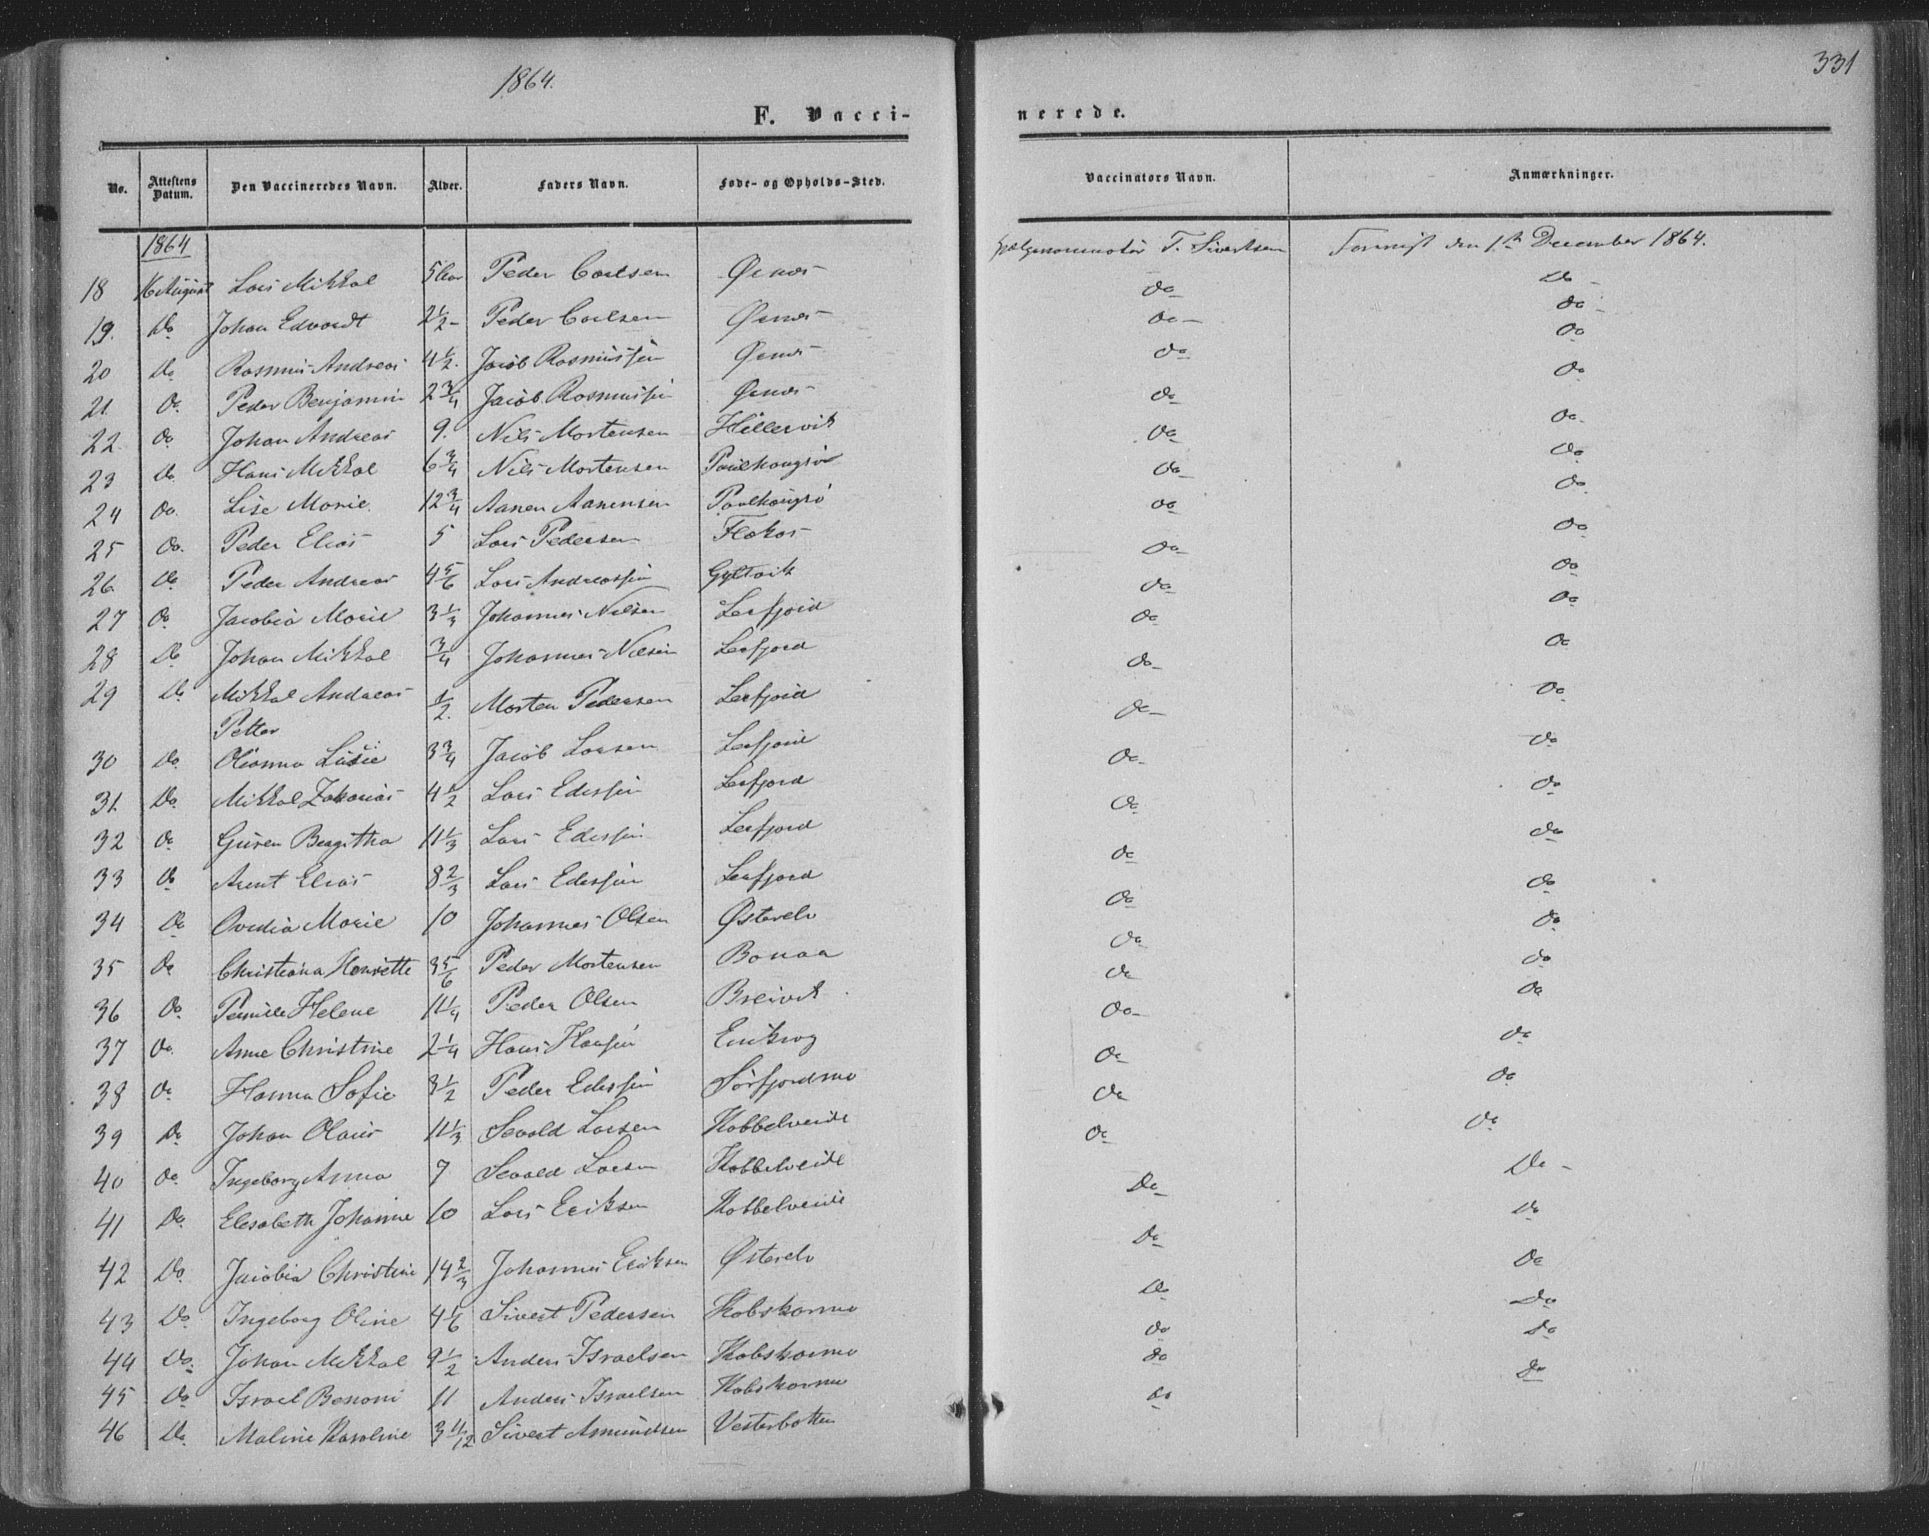 1864.
331
F. Vacci-
nerede.
No. Attestens Datum. Den Vaccineredes Navn. Alver. Faders Navn. Føde- og Opholds-Sted. Vaccinators Navn. Anmærkninger.
1864
18 16 August Lars Mikkal 5 Aar Peder Carlsen Ørnes T. Sivertsen den 1ste December 1864.
19. Do Johan Edvardt 2 1/2 - Peder Carlsen Ørnes do - Do -
20 Do Rasmus Andreas 4 1/2. Jacob Rasmussen Ørnes do - do -
21 Do. Peder Benjamin 2 3/4 Jacob Rasmussen Ørnes do do
22. Do Johan Andreas 9. Nils Mortensen Hillervik do do
23 Do Hans Mikkal 6 3/4 Nils Mortensen do do.
24 Do. Lise Marie. 12 3/4 Aanen Aanensen do do
25 Do. Peder Elias 5 Lars Pedersen do do
26 Do Peder Andreas 4 5/6 Lars Andreassen Gyltvik do do
27 Do Jacobia Marie 3 1/3 Johannes Nilsen Leefjord do do
28 Do Johan Mikkal 3/4 Johannes Nilsen Leefjord do do
29 Do Mikkal Andreas 1/2. Morten Pedersen Leefjord do do
Petter
30 Do. Olianna Lusie 3 3/4 Jacob Larsen Leefjord do - do
31 Do. Mikkal Zakarias 4 1/2 Lars Edessen Leefjord do do
32 do Guren Bergitha 11 1/3 Lars Edessen Leefjord do do
33 Do Arent Elias 8 2/3 Lars Edessen Leefjord do do
34 Do Ovedia Marie 10 Johannes Olsen Østerelv do do
35 Do Christiana Henrette 3 5/6 Peder Mortensen Bonaa do do
36 Do. Pernille Helene 11 1/4 Peder Olsen Breivik do do
37 Do. Anne Christine 2 1/4 Hans Hansen do do
38 Do Hanna Sofie 3 1/2 Peder Edessen Sørfjordmo do do
39 Do Johan Olaus 11 1/3 Sevald Larsen Kobbelveide do do
40 do Ingeborg Anna 7 Sevald Larsen Kobbelveide do do
41 Do. Elesabeth Johanne 10 Lars Eriksen Kobbelveide Do Do -
42 Do. Jacobia Christine 14 2/3 Johannes Eriksen Østerelv Do Do
43 Do Ingeborg Oline 4 1/6 Sivert Pedersen Kobskarmo Do Do
44 Do. Johan Mikkal 9 1/2 Anders Israelsen Kobskarmo do Do
45 Do Israel Benoni 11 Anders Israelsen Kobskarmo do Do
46 Do. Maline Karoline 3 11/12 Sivert Asmundsen Vesterbotten do Do